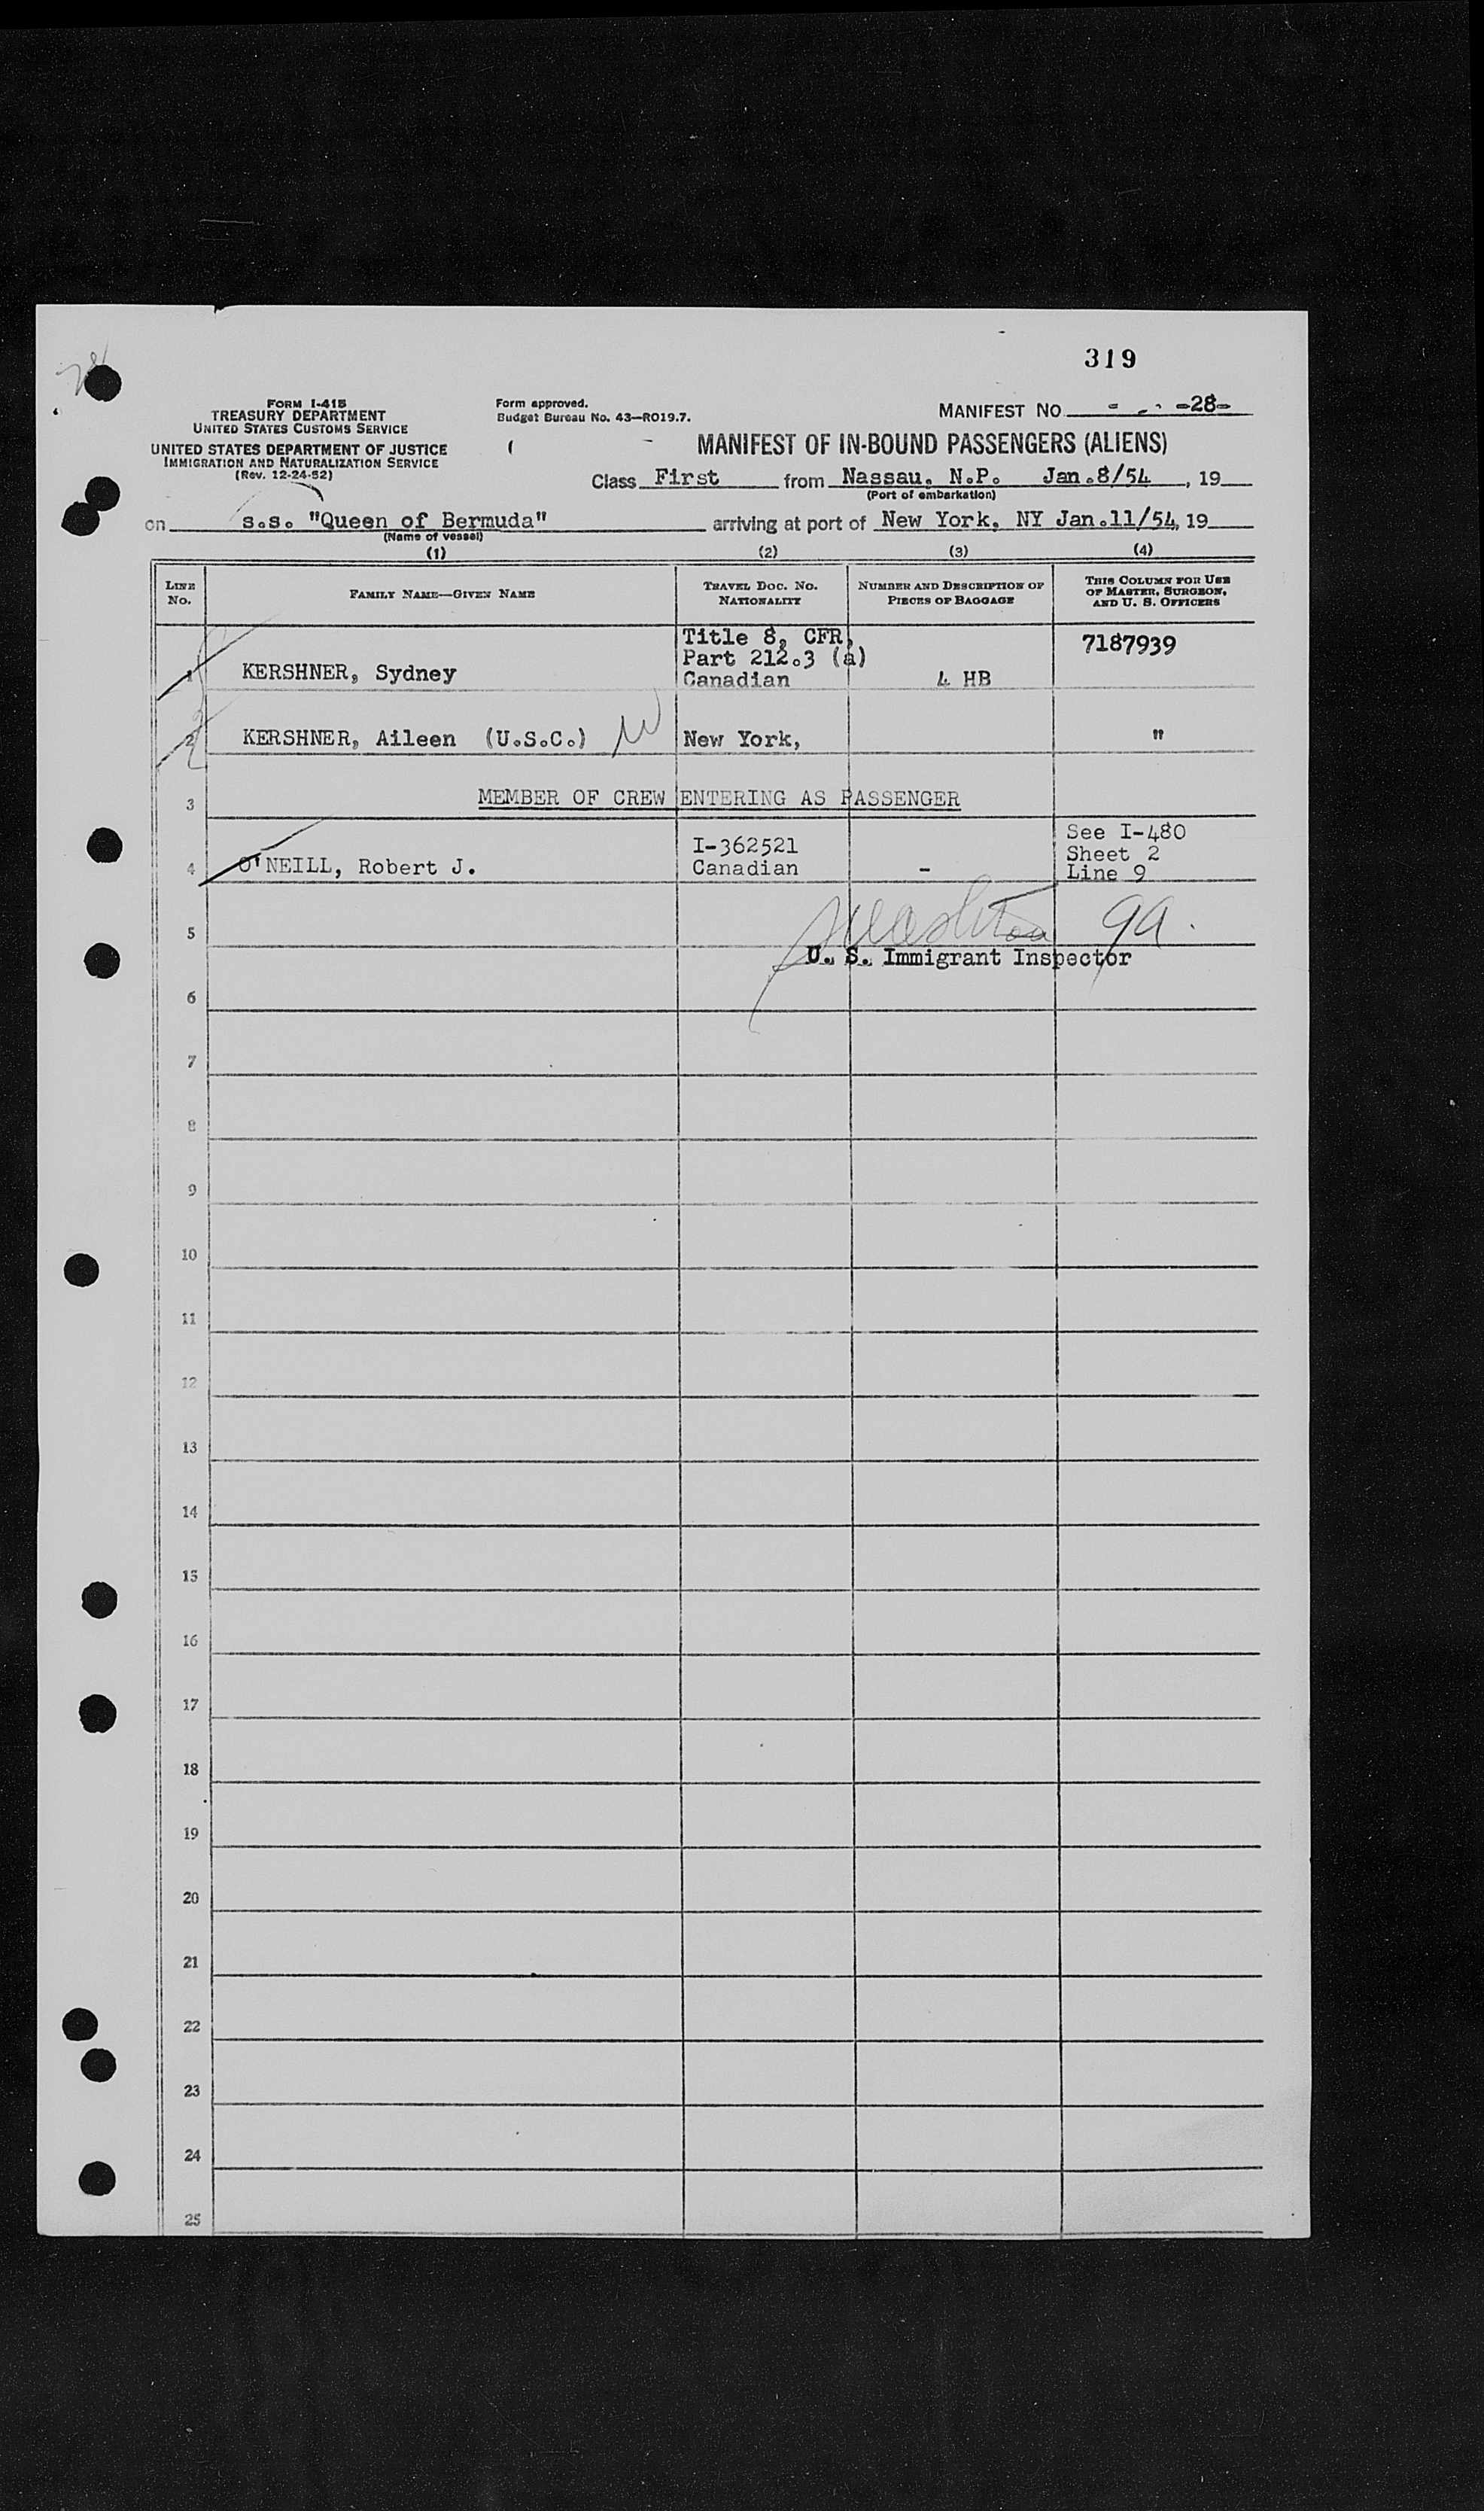 319
28
FORM I-418
TREASURY DEPARTMENT
UNITED STATES CUSTOMS SERVICE
UNITED STATES DEPARTMENT OF JUSTICE
IMMIGRATION AND NATURALIZATION SERVICE
(Rev. 12-24-52)
Form approved.
Budget Bureau No. 43—RO19.7.
MANIFEST NO. -28-
MANIFEST OF IN-BOUND PASSENGERS (ALIENS)
Class First from Nassau, N.P. Jan.8/54, 19
(Port of embarkation)
on s.s. "Queen of Bermuda" arriving at port of New York, NY Jan.11/54, 19
(Name of vessel)
(1) (2) (3) (4)
LINE No. FAMILY NAME—GIVEN NAME TRAVEL DOC. NO. NATIONALITY NUMBER AND DESCRIPTION OF PIECES OF BAGGAGE THIS COLUMN FOR USE OF MASTER, SURGEON, AND U. S. OFFICERS
Title 8, CFR, 7187939
Part 212.3 (a)
1 KERSHNER, Sydney Canadian 4 HB
2 KERSHNER, Aileen (U.S.C.) New York, "
3 MEMBER OF CREW ENTERING AS PASSENGER
See I-480
I-362521 Sheet 2
4 O'NEILL, Robert J. Canadian - Line 9
5
U. S. Immigrant Inspector
6
7
8
9
10
11
12
13
14
15
16
17
18
19
20
21
22
23
24
25